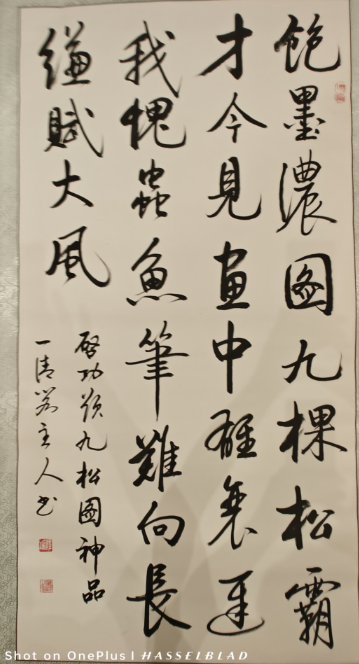 飽墨濃圖九棵松霸
才今見畫中雄衰遲
我愧蟲魚筆難向長
縑賦大風
啓功九松圖神品
一清主人书
Shot on OnePlus | HASSELBLAD